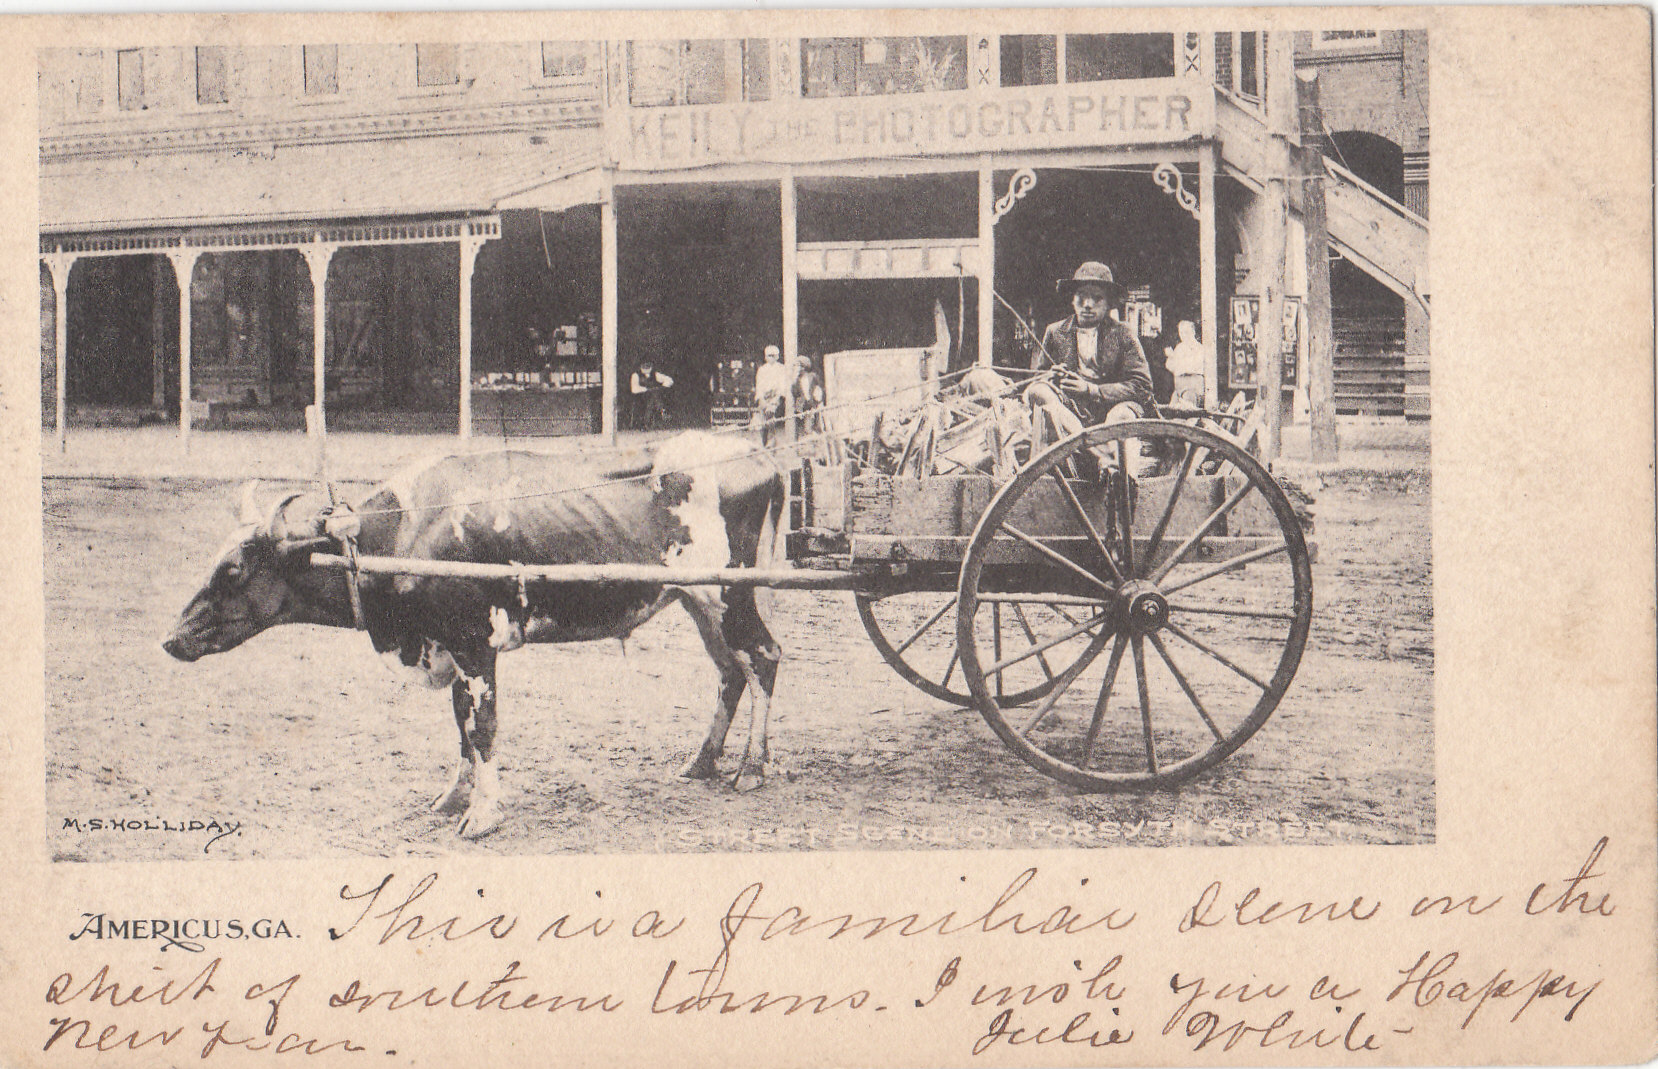 KEILY THE PHOTOGRAPHER
M.S. HOLLIDAY.
STREET SCENE ON FORSYTH STREET.
AMERICUS, GA. This is a familiar scene on the
street of southern towns. I wish you a Happy
New Year. Julie White